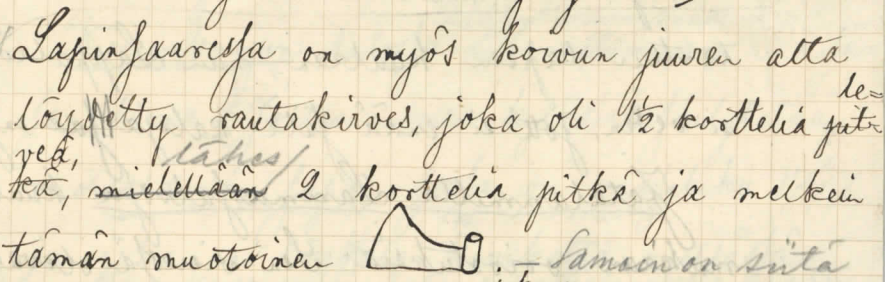 Lapinsaaressa on myös koivun juuren alta
löydetty rautakirves, joka oli 1½ korttelia pit- le=
kä, veä, mielellään lähes 2 korttelia pitkä ja melkein
tämän muotoinen . – Samoin on siitä